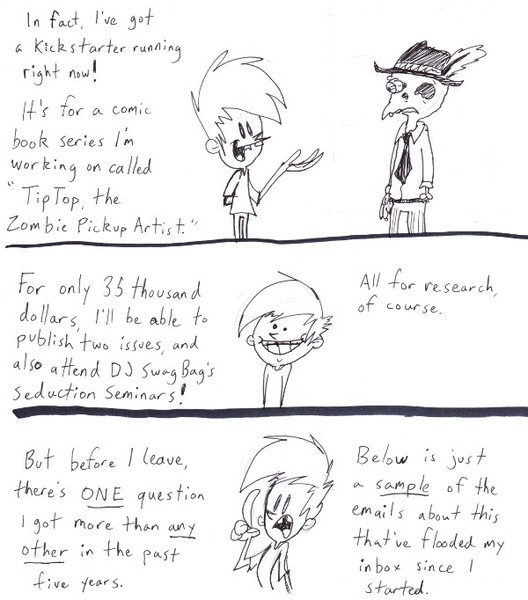 In fact, I've got
a Kickstarter running
right now!
It's for a comic
book series I'm
working on called
"TipTop, the
Zombie Pickup Artist."
For only 35 thousand
dollars, I'll be able to
publish two issues, and
also attend DJ SwagBag's
Seduction Seminars!
All for research,
of course.
But before I leave,
there's ONE question
I got more than any
other in the past
five years.
Below is just
a sample of the
emails about this
that've flooded my
inbox since I
started.